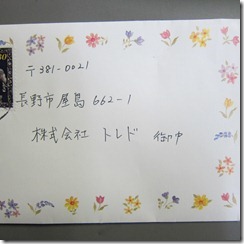 〒381-0021
長野市屋島 662-1
株式会社 トレド 御中